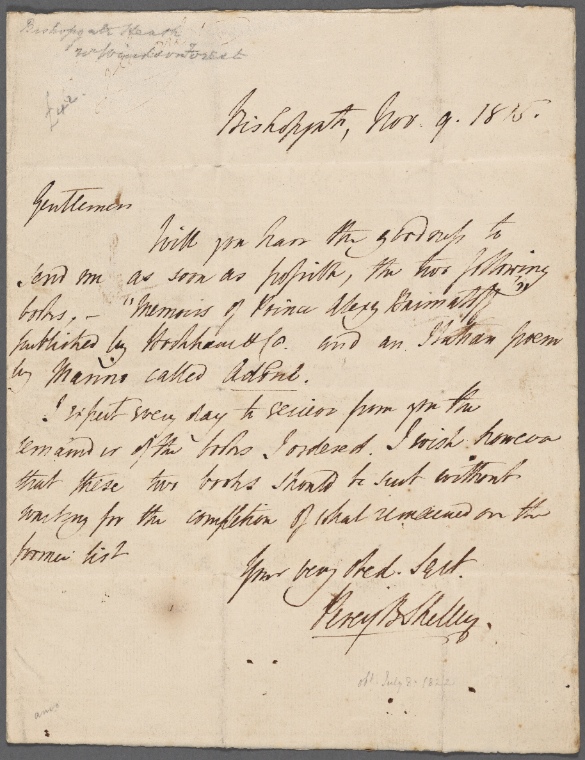 Bishopgate Heath
nr Windsor Forest
£42.
Bishopgate, Nov. 9. 1815.
Gentlemen
Will you have the goodness to
send me as soon as possible, the two following
books, – "Memoirs of Prince Alexy Haimatoff"
published by Hookham & Co. and an Italian poem
by Marino called Adone.
I expect every day to receive from you the
remainder of the books I ordered. I wish however
that these two books should be sent without
waiting for the completion of what remained on the
former list
Your very obed. Sert.
Percy B Shelley.
obt. July 8 - 1822